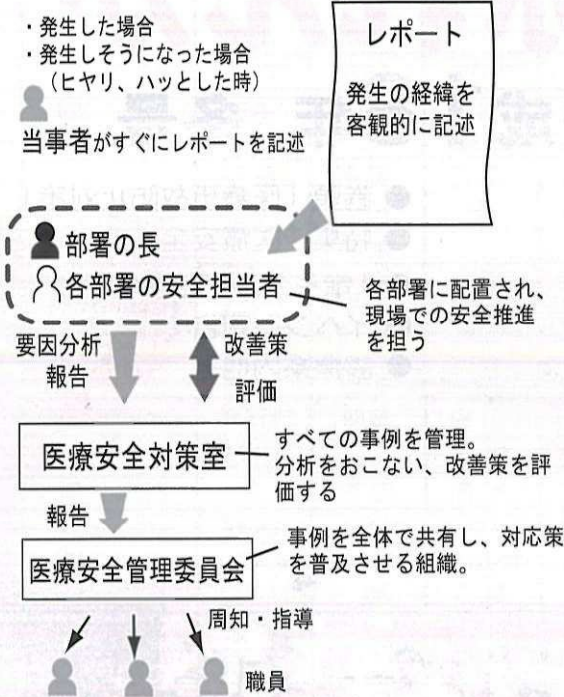 ・発生した場合
・発生しそうになった場合
（ヒヤリ、ハッとした時）
当事者がすぐにレポートを記述
レポート
発生の経緯を
客観的に記述
部署の長
各部署の安全担当者
各部署に配置され、
現場での安全推進
を担う
要因分析
報告
改善策
評価
医療安全対策室
すべての事例を管理。
分析をおこない、改善策を評
価する
報告
医療安全管理委員会
事例を全体で共有し、対応策
を普及させる組織。
周知・指導
職員